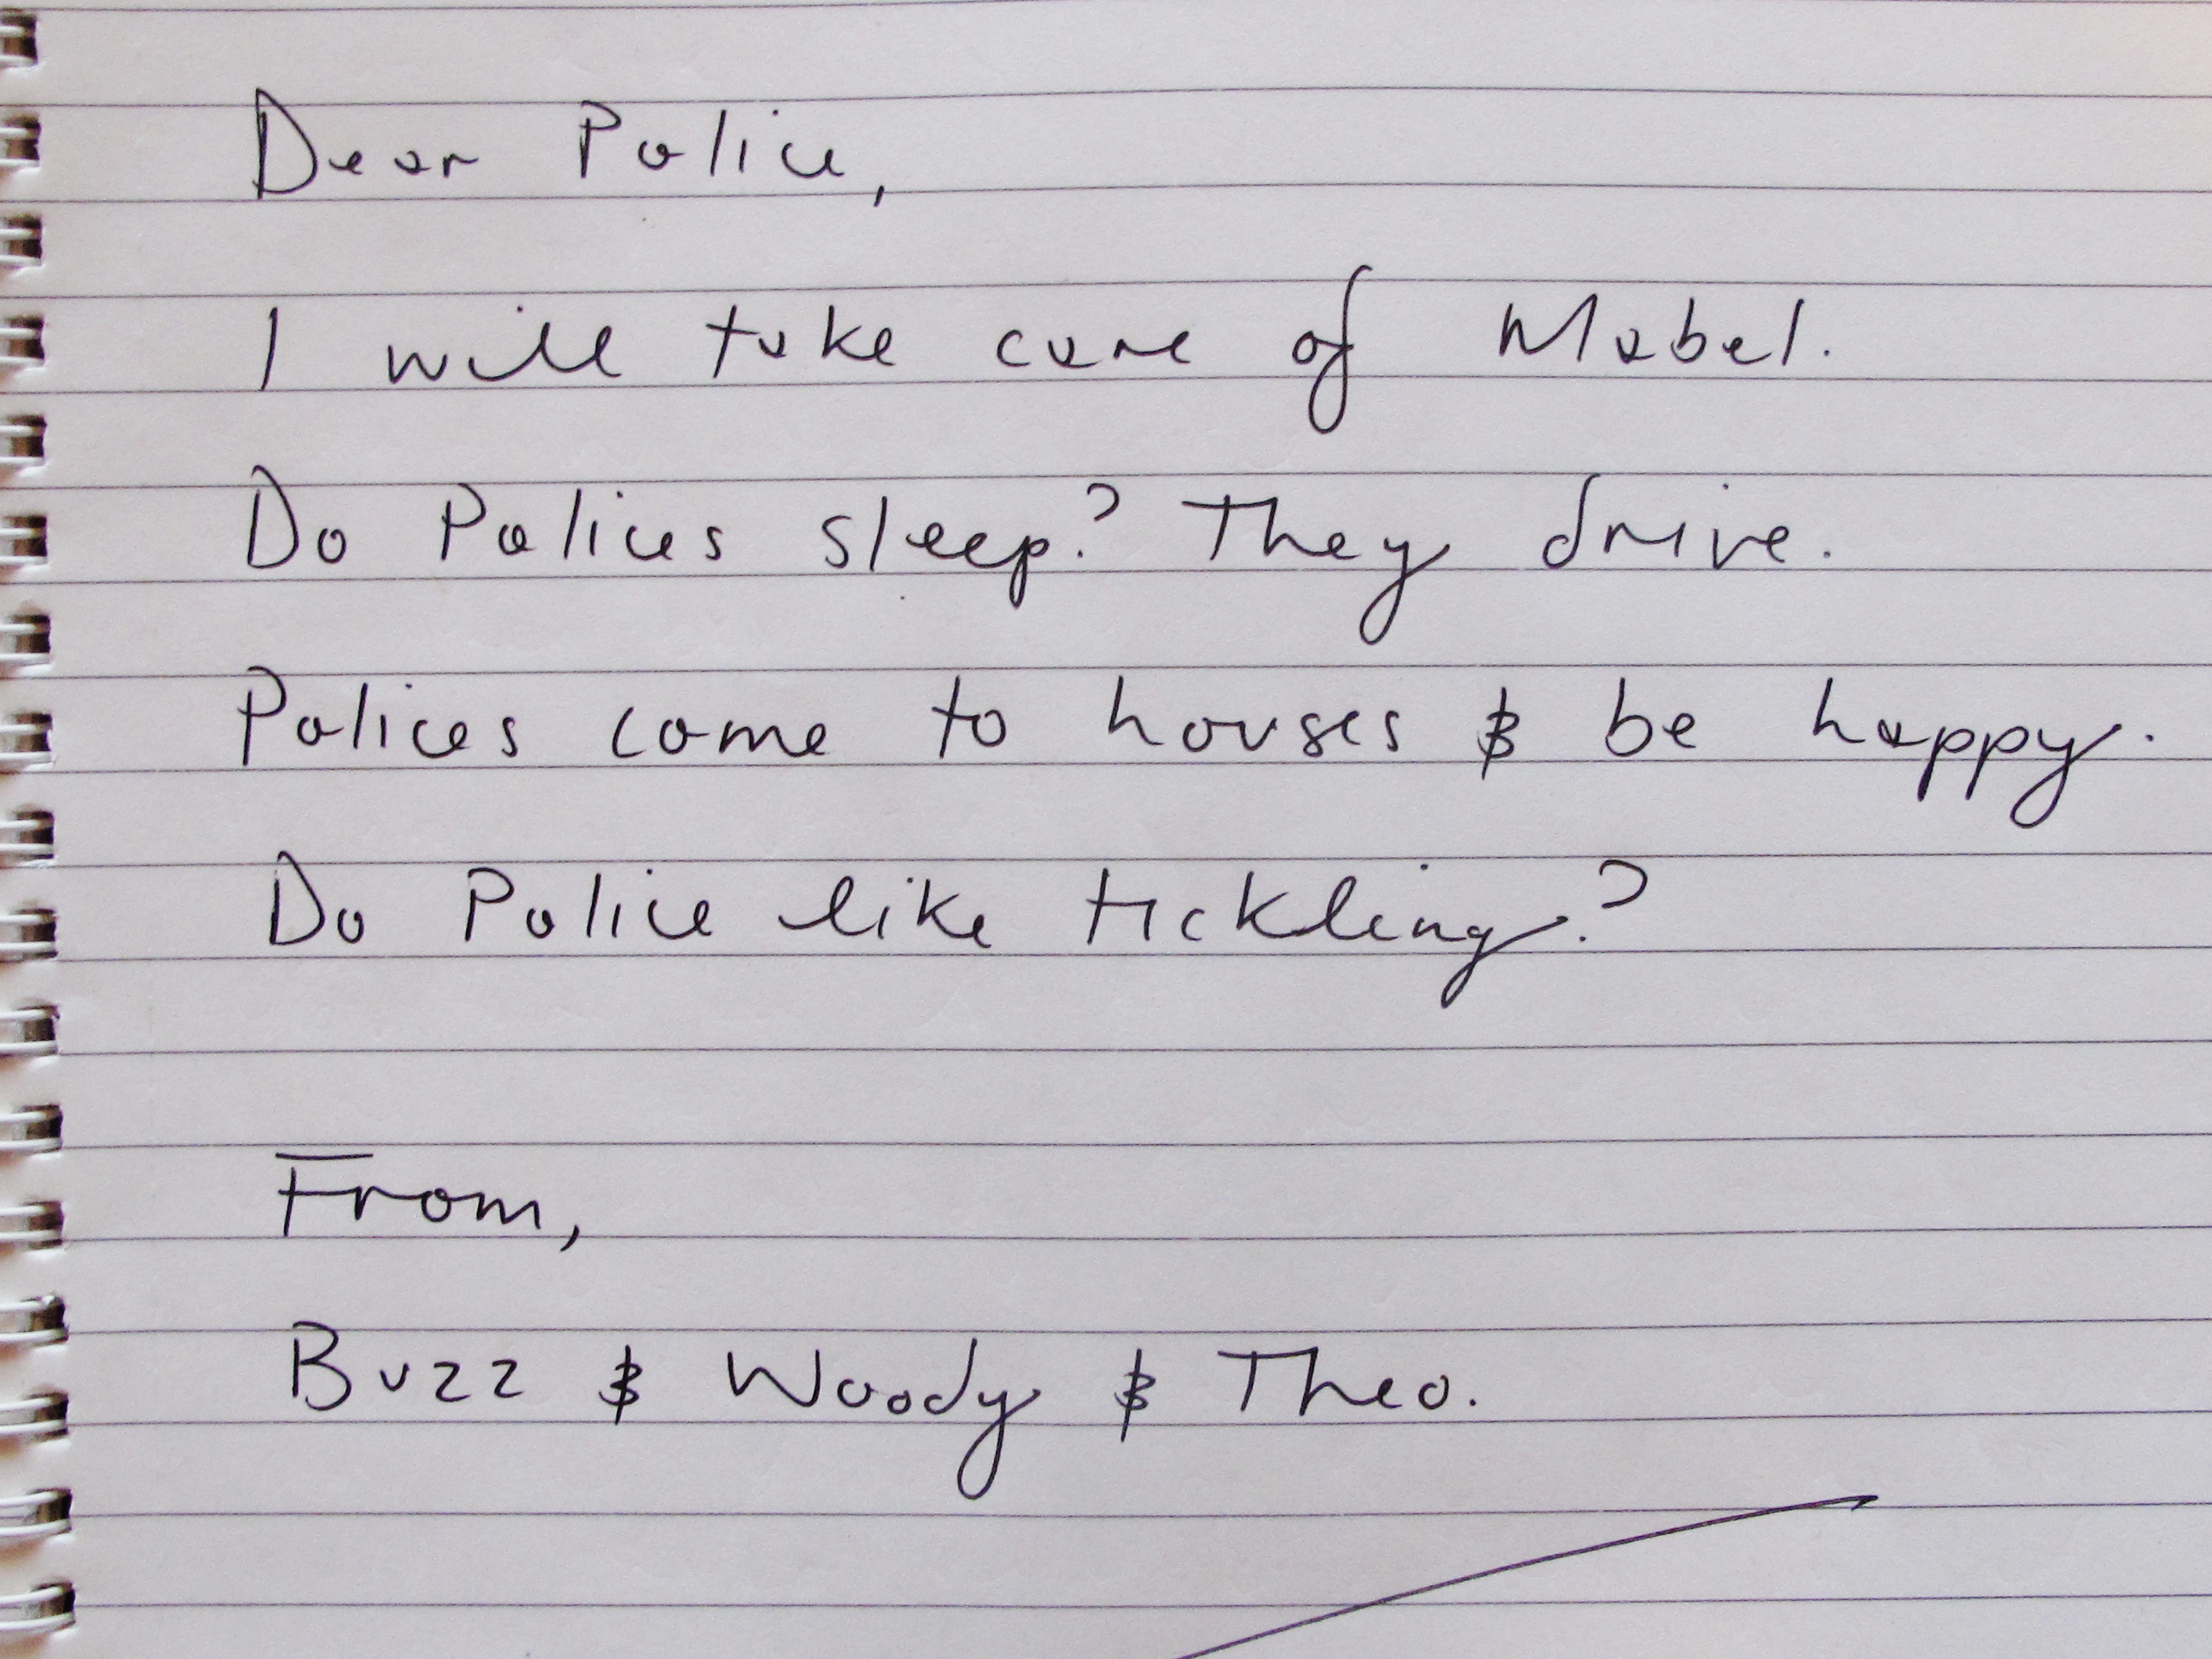 Dear Police,
I will take care of Mabel.
Do Polices sleep? They drive.
Polices come to houses & be happy.
Do Police like tickling?
From,
Buzz & Woody & Theo.